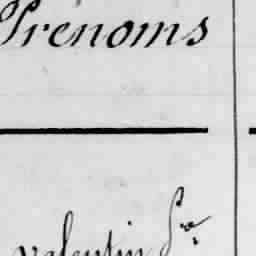 Prénoms
valentin Sr